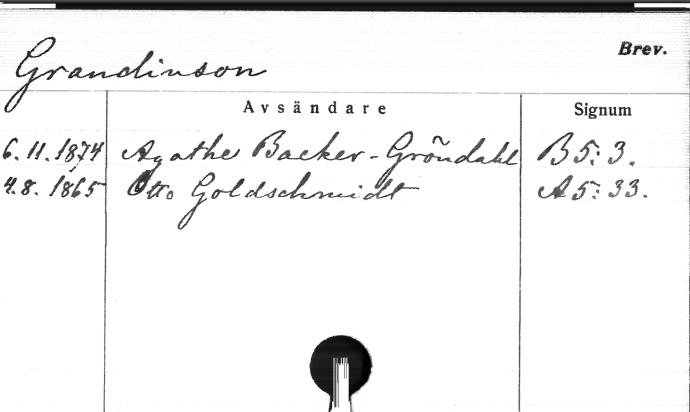 Brev.
Grandinson
Avsändare Signum
6.11.1874 Agathe Backer-Gröndahl B5:3.
4.8.1865 Otto Goldschmidt A5:33.